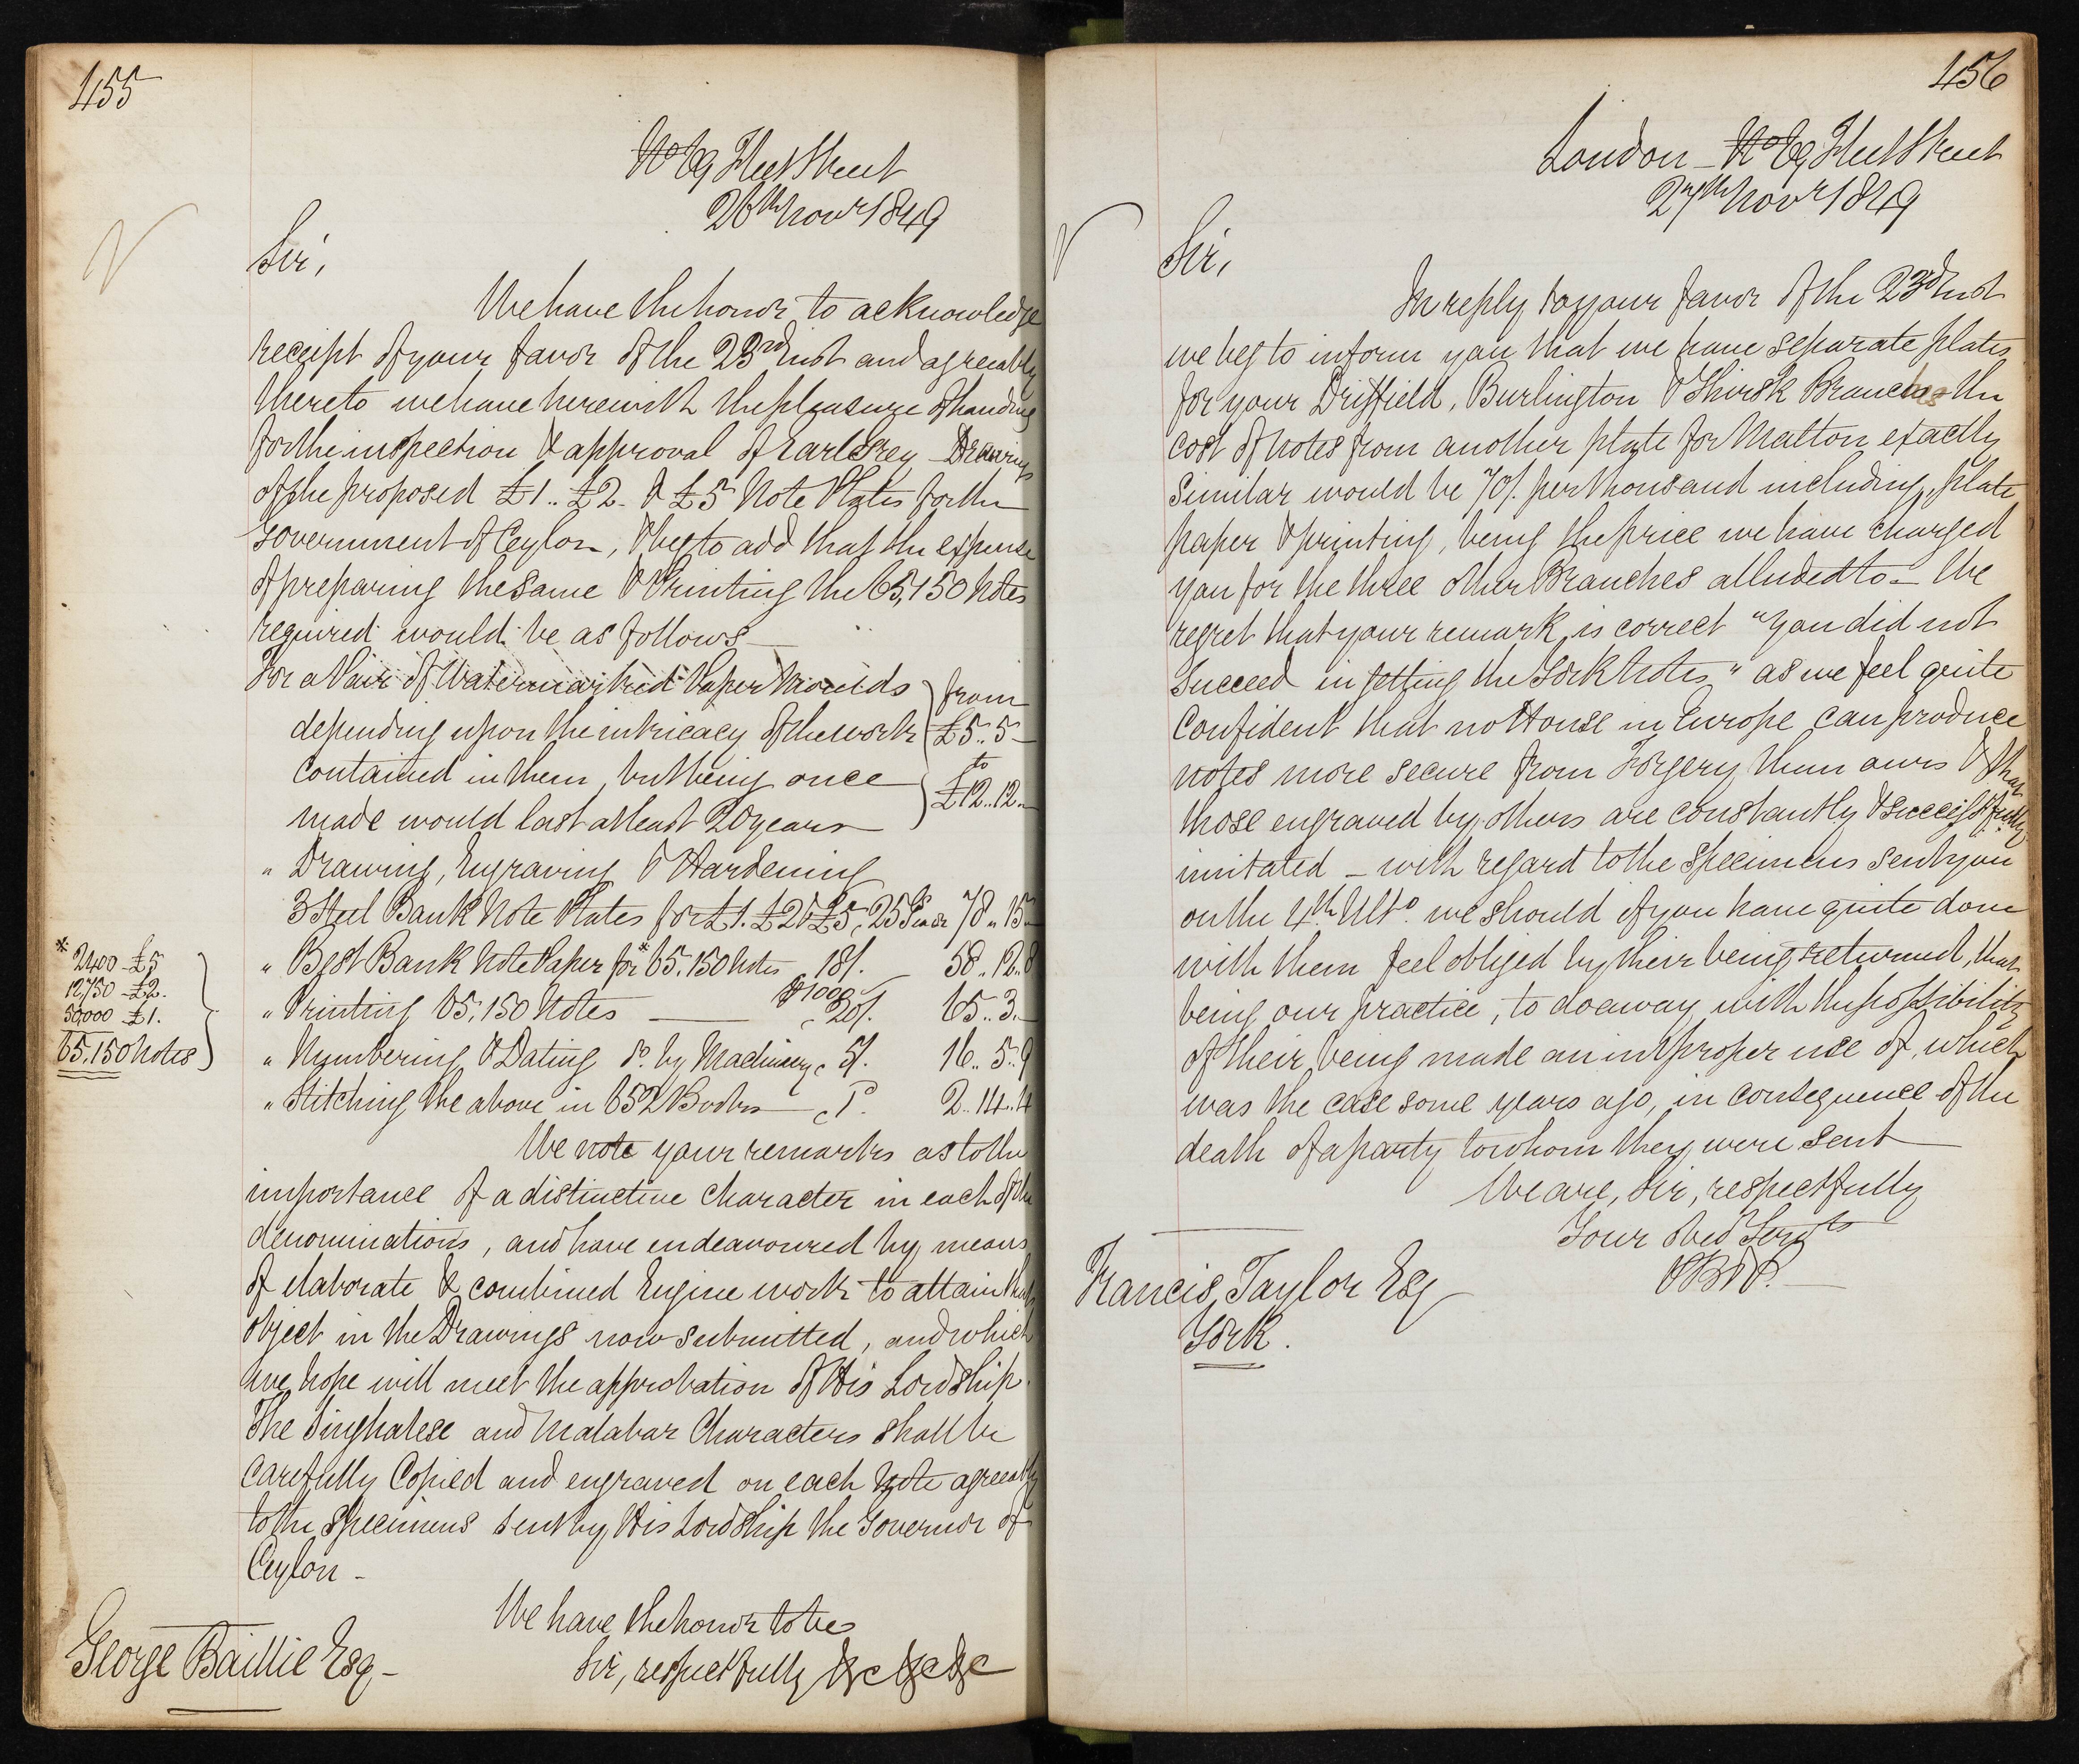 455
No 69 Fleet Street
26th Novr 1849
Sir,
We have the honor to acknowledge
receipt of your favor of the 23rd inst and agreeably
thereto we have herewith the pleasure of handing
for the inspection & approval of Earl Grey - Drawings
of the proposed £1.. £2 - & £5 Note Plates for the
Government of Ceylon, & beg to add that the expense
of preparing the same & Printing the 65,150 Notes
required would be as follows
For a Pair of Watermarked Paper Moulds
depending upon the intricacy of the work
contained in them, but being once
made would last at least 20 years
from
£5..5-
to
£12..12..
" Drawing, Engraving & Hardening
3 Steel Bank Note Plates for £1. £2 & £5, 25 Gs each 78 " 15 -
" Best Bank Note Paper for * 65,150 Notes 18/. 58..12..8
" Printing 65,150 Notes — 20/. ₱ 1000 65..3..—
" Numbering & Dating Do. by Machinery 5/. 16..5..9
" Stitching the above in 652 Books 1d. 2..14..4
* 2400 - £5
12,750 - £2.
50,000 - £1.
65,150 Notes
We note your remarks as to the
importance of a distinctive character in each of the
denominations, and have endeavoured by means
of elaborate & combined Engine work to attain that
object in the Drawings now submitted, and which
we hope will meet the approbation of His Lordship.
The Singhalese and Malabar Characters shall be
carefully Copied and engraved on each Note agreeably
to the Specimens sent by His Lordship the Governor of
Ceylon -
We have the honor to be
Sir, respectfully &c &c &c
George Baillie Esq -
456
London - No 69 Fleet Street
27th Novr 1849
Sir,
In reply to your favor of the 23rd inst
we beg to inform you that we have separate plates
for your Driffield, Burlington & Thirsk Branches the
cost of Notes from another plate for Malton exactly
similar would be 70/. per thousand including, plate
paper & printing, being the price we have charged
you for the three other Branches alluded to - We
regret that your remark is correct "you did not
succeed in getting the York Notes" as we feel quite
confident that no House in Europe can produce
notes more secure from Forgery than ours & that
those engraved by others are constantly & successfully
imitated - with regard to the specimens sent you
on the 4th Ulto. we should if you have quite done
with them feel obliged by their being returned, that
being our practice, to do away with the possibility
of their being made an improper use of, which
was the case some years ago, in consequence of the
death of a party to whom they were sent
We are, Sir, respectfully
Your Obed Servts
PB&P.
Francis Taylor Esq
York.